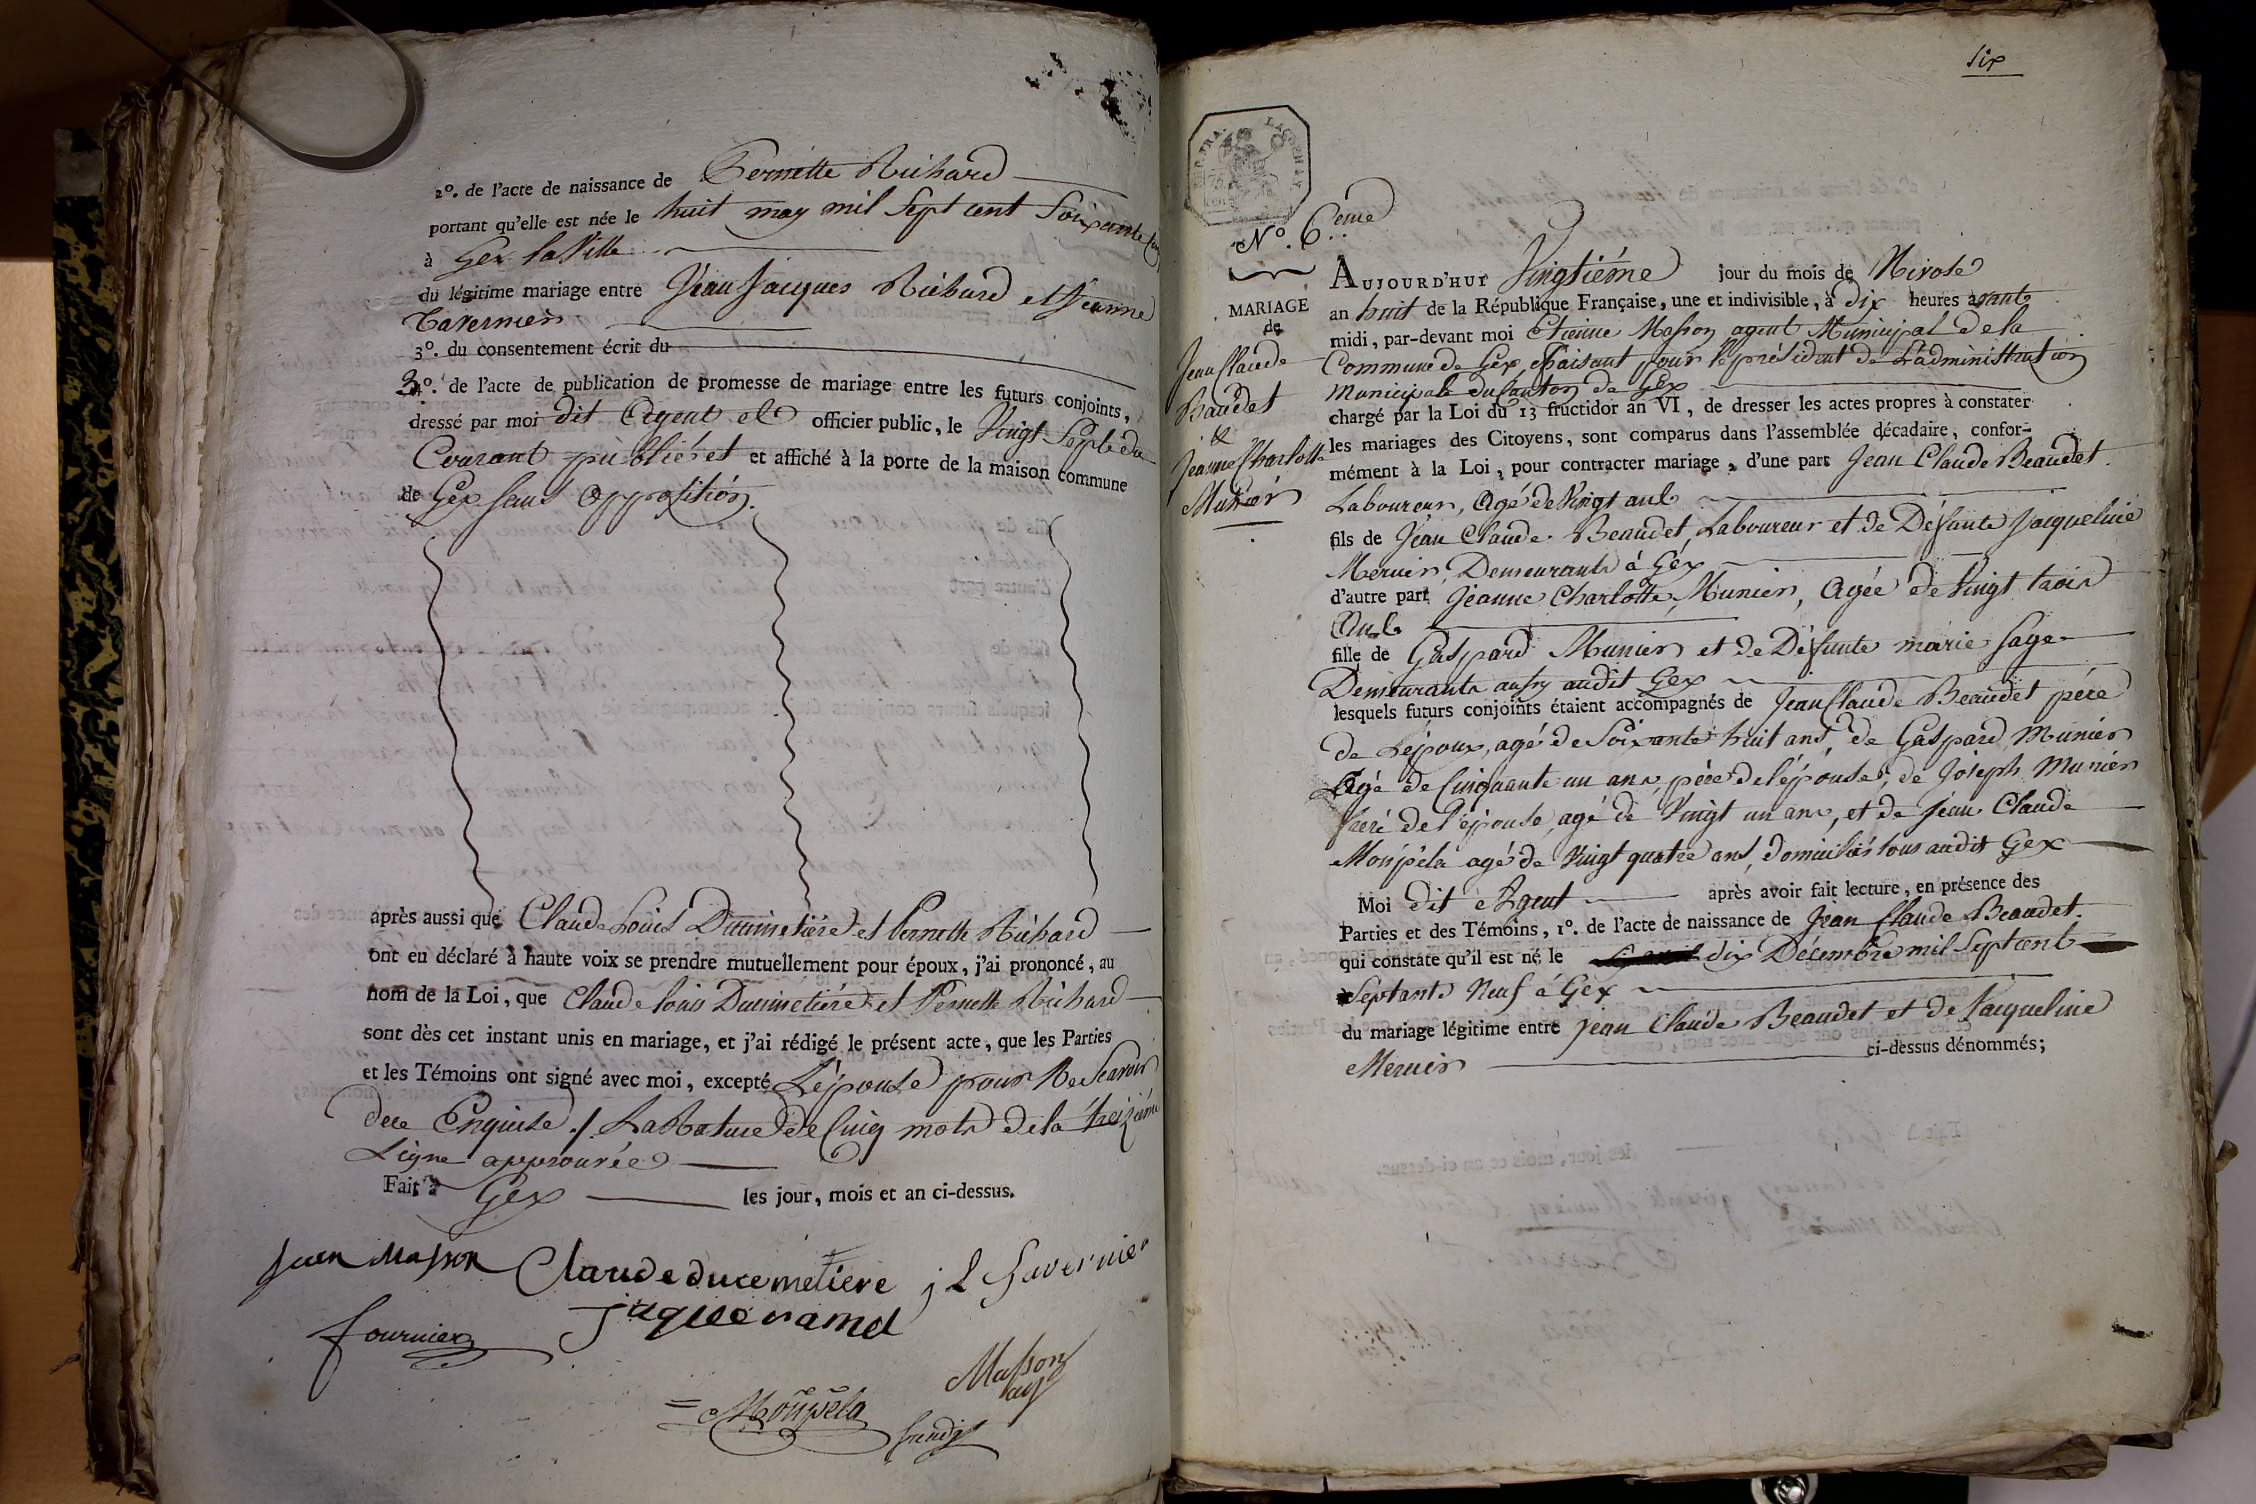 2º. de l'acte de naissance de Pernette Richard
portant qu'elle est née le huit may mil sept cent soixante
à Gex la Ville
du légitime mariage entre Jean Jacques Richard et Jeanne
Tavernier
3º. du consentement écrit du
3º. de l'acte de publication de promesse de mariage entre les futurs conjoints,
dressé par moi dit Agent et officier public, le Vingt Sept du
Courant publié et et affiché à la porte de la maison commune
de Gex sans opposition.
après aussi que Claude Louis Ducimetière et Pernette Richard
ont eu déclaré à haute voix se prendre mutuellement pour époux, j'ai prononcé, au
nom de la Loi, que Claude louis Ducimetière et Pernette Richard
sont dès cet instant unis en mariage, et j'ai rédigé le présent acte, que les Parties
et les Témoins ont signé avec moi, excepté L'épouse pour Ne Scavoir
de ce Enquise ./. La Rature de Cinq mots de la treizième
Ligne approuvée
Fait à Gex les jour, mois et an ci-dessus.
Jean Masson Claude ducemetiere j L Tavernier
fournier jaque ramel
Masson
agt
Moupela
six
Nº. 6.ème
AUJOURD'HUI Vingtiéme jour du mois de Nivose
MARIAGE
de
Jean Claude
Baudet
&
Jeanne Charlotte
Munier
an huit de la République Française, une et indivisible, à dix heures avant
midi, par-devant moi Etienne Masson agent Municipal de la
Commune de Gex faisant pour le président de L'administration
Municipale du Canton de Gex
chargé par la Loi du 13 fructidor an VI, de dresser les actes propres à constater
les mariages des Citoyens, sont comparus dans l'assemblée décadaire, confor-
mément à la Loi, pour contracter mariage, d'une part Jean Claude Beaudet
Laboureur, Agé de Vingt ans
fils de Jean Claude Beaudet, Laboureur et de Défunte Jacqueline
Mercier, Demeurants à Gex
d'autre part Jeanne Charlotte Munier, Agée de Vingt trois
Ans
fille de Gaspard Munier et de Défunte marie Sage
Demeurants aussy audit Gex
lesquels futurs conjoints étaient accompagnés de Jean Claude Beaudet père
de L'époux, agé de Soixante huit ans, de Gaspard Munier
Agé de Cinquante un ans, père de l'épouse, de Joseph Munier
frere de l'épouse, agé de Vingt un ans, et de Jean Claude
Moupéla agé de Vingt quatre ans, domiciliés tous audit Gex
Moi dit Agent après avoir fait lecture, en présence des
Parties et des Témoins, 1º. de l'acte de naissance de Jean Claude Beaudet
qui constate qu'il est né le dix Décembre mil Sept cent
Septante Neuf à Gex
du mariage légitime entre Jean Claude Beaudet et de Jacqueline
Mercier ci-dessus dénommés;